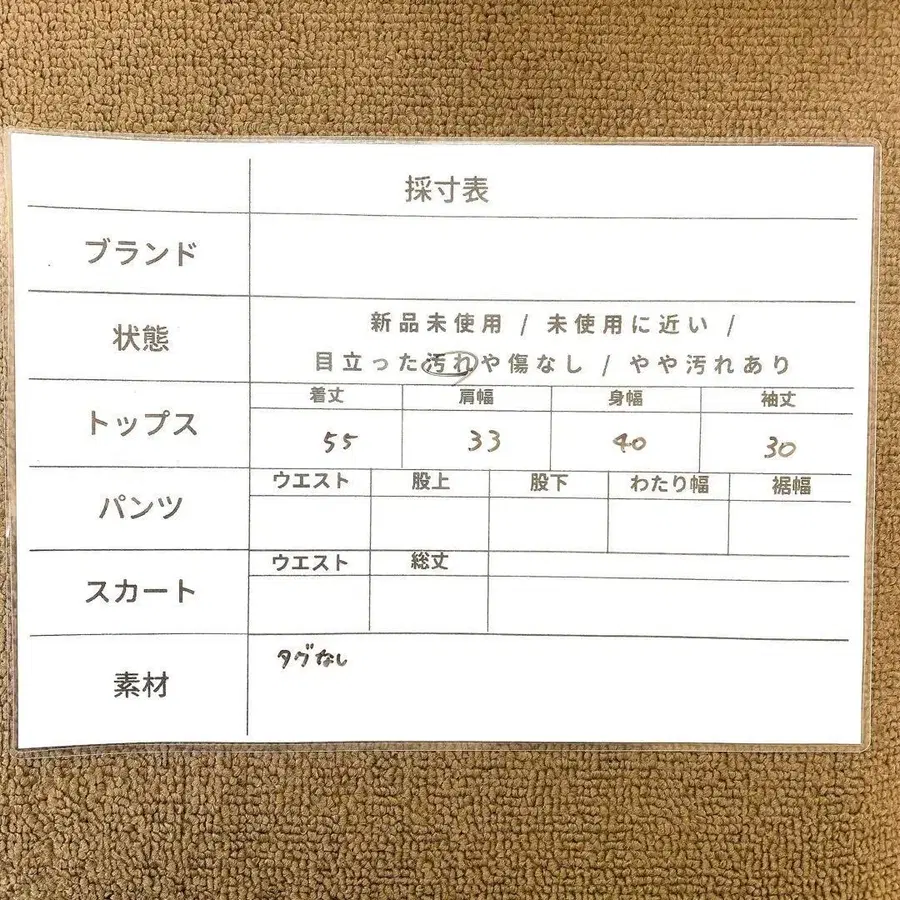 採寸表
ブランド
状態
新品未使用 / 未使用に近い /
目立った汚れや傷なし / やや汚れあり
トップス
着丈 肩幅 身幅 袖丈
55 33 40 30
パンツ
ウエスト 股上 股下 わたり幅 裾幅
スカート
ウエスト 総丈
素材
タグなし